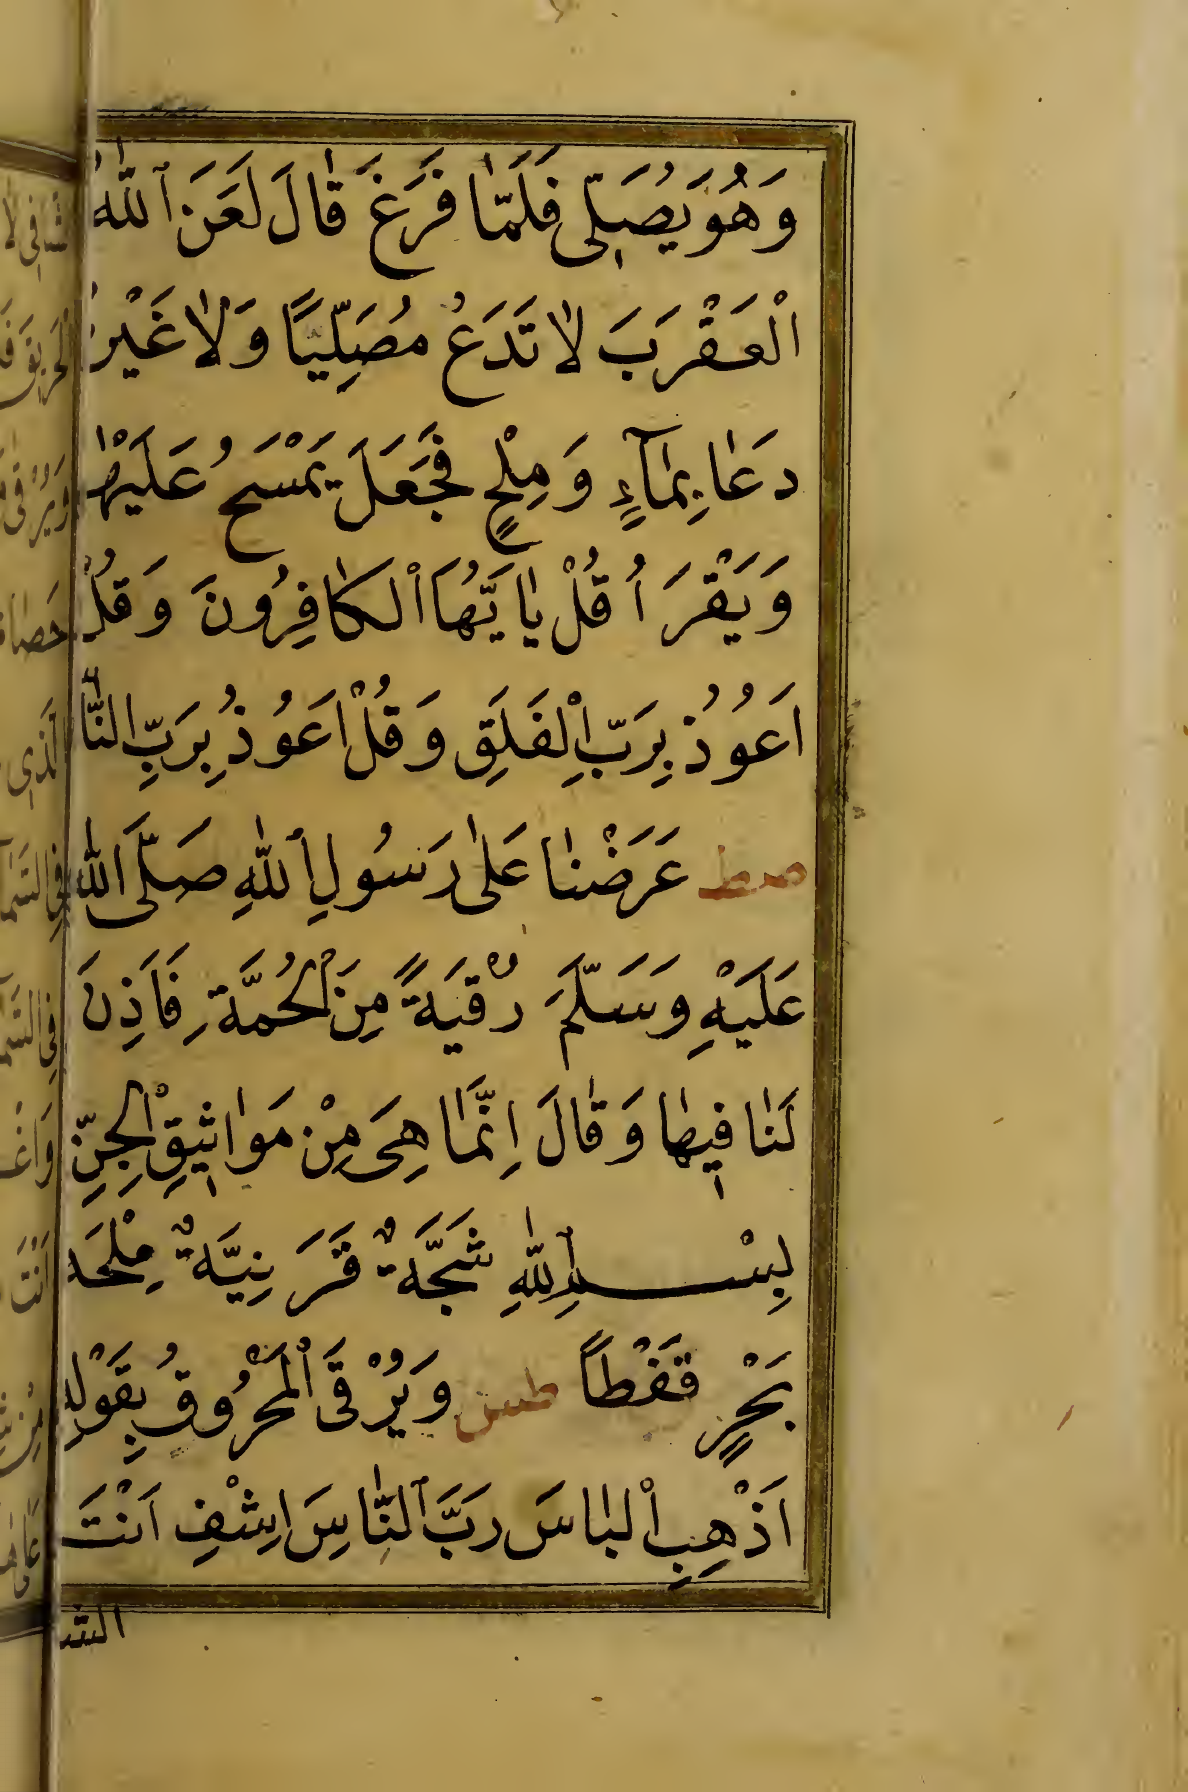 وَهُوَ يُصَلِّى فَلَمَّا فَرَغَ قَالَ لَعَنَ ٱللّٰهُ
الْعَقْرَبَ لَا تَدَعُ مُصَلِّيًا وَلَا غَيْرَ
دَعَا بِمَآءٍ وَمِلْحٍ فَجَعَلَ يَمْسَحُ عَلَيْهَا
وَيَقْرَأُ قُلْ يَا يَّهَا ٱلْكَافِرُونَ وَقُلْ
اَعُوذُ بِرَبِّ الْفَلَقِ وَقُلْ اَعُوذُ بِرَبِّ النَّا
صط عَرَضْنَا عَلٰى رَسُولِ ٱللّٰهِ صَلَّى اللّٰهُ
عَلَيْهِ وَسَلَّمَ رُقْيَةً مِنَ الْحُمَّةِ فَاَذِنَ
لَنَا فِيهَا وَقَالَ اِنَّمَا هِىَ مِنْ مَوَاثِيقِ الْجِنِّ
بِسْمِ ٱللّٰهِ شَجَّةٌ قَرَنِيَّةٌ مِلْحَه
بَحْرٍ قَفْطًا طس وَيُرْقَى ٱلْمَحْرُوقُ بِقَوْلِهِ
اَذْهِبِ الْبَاسَ رَبَّ ٱلنَّاسِ اِشْفِ اَنْتَ
الشا